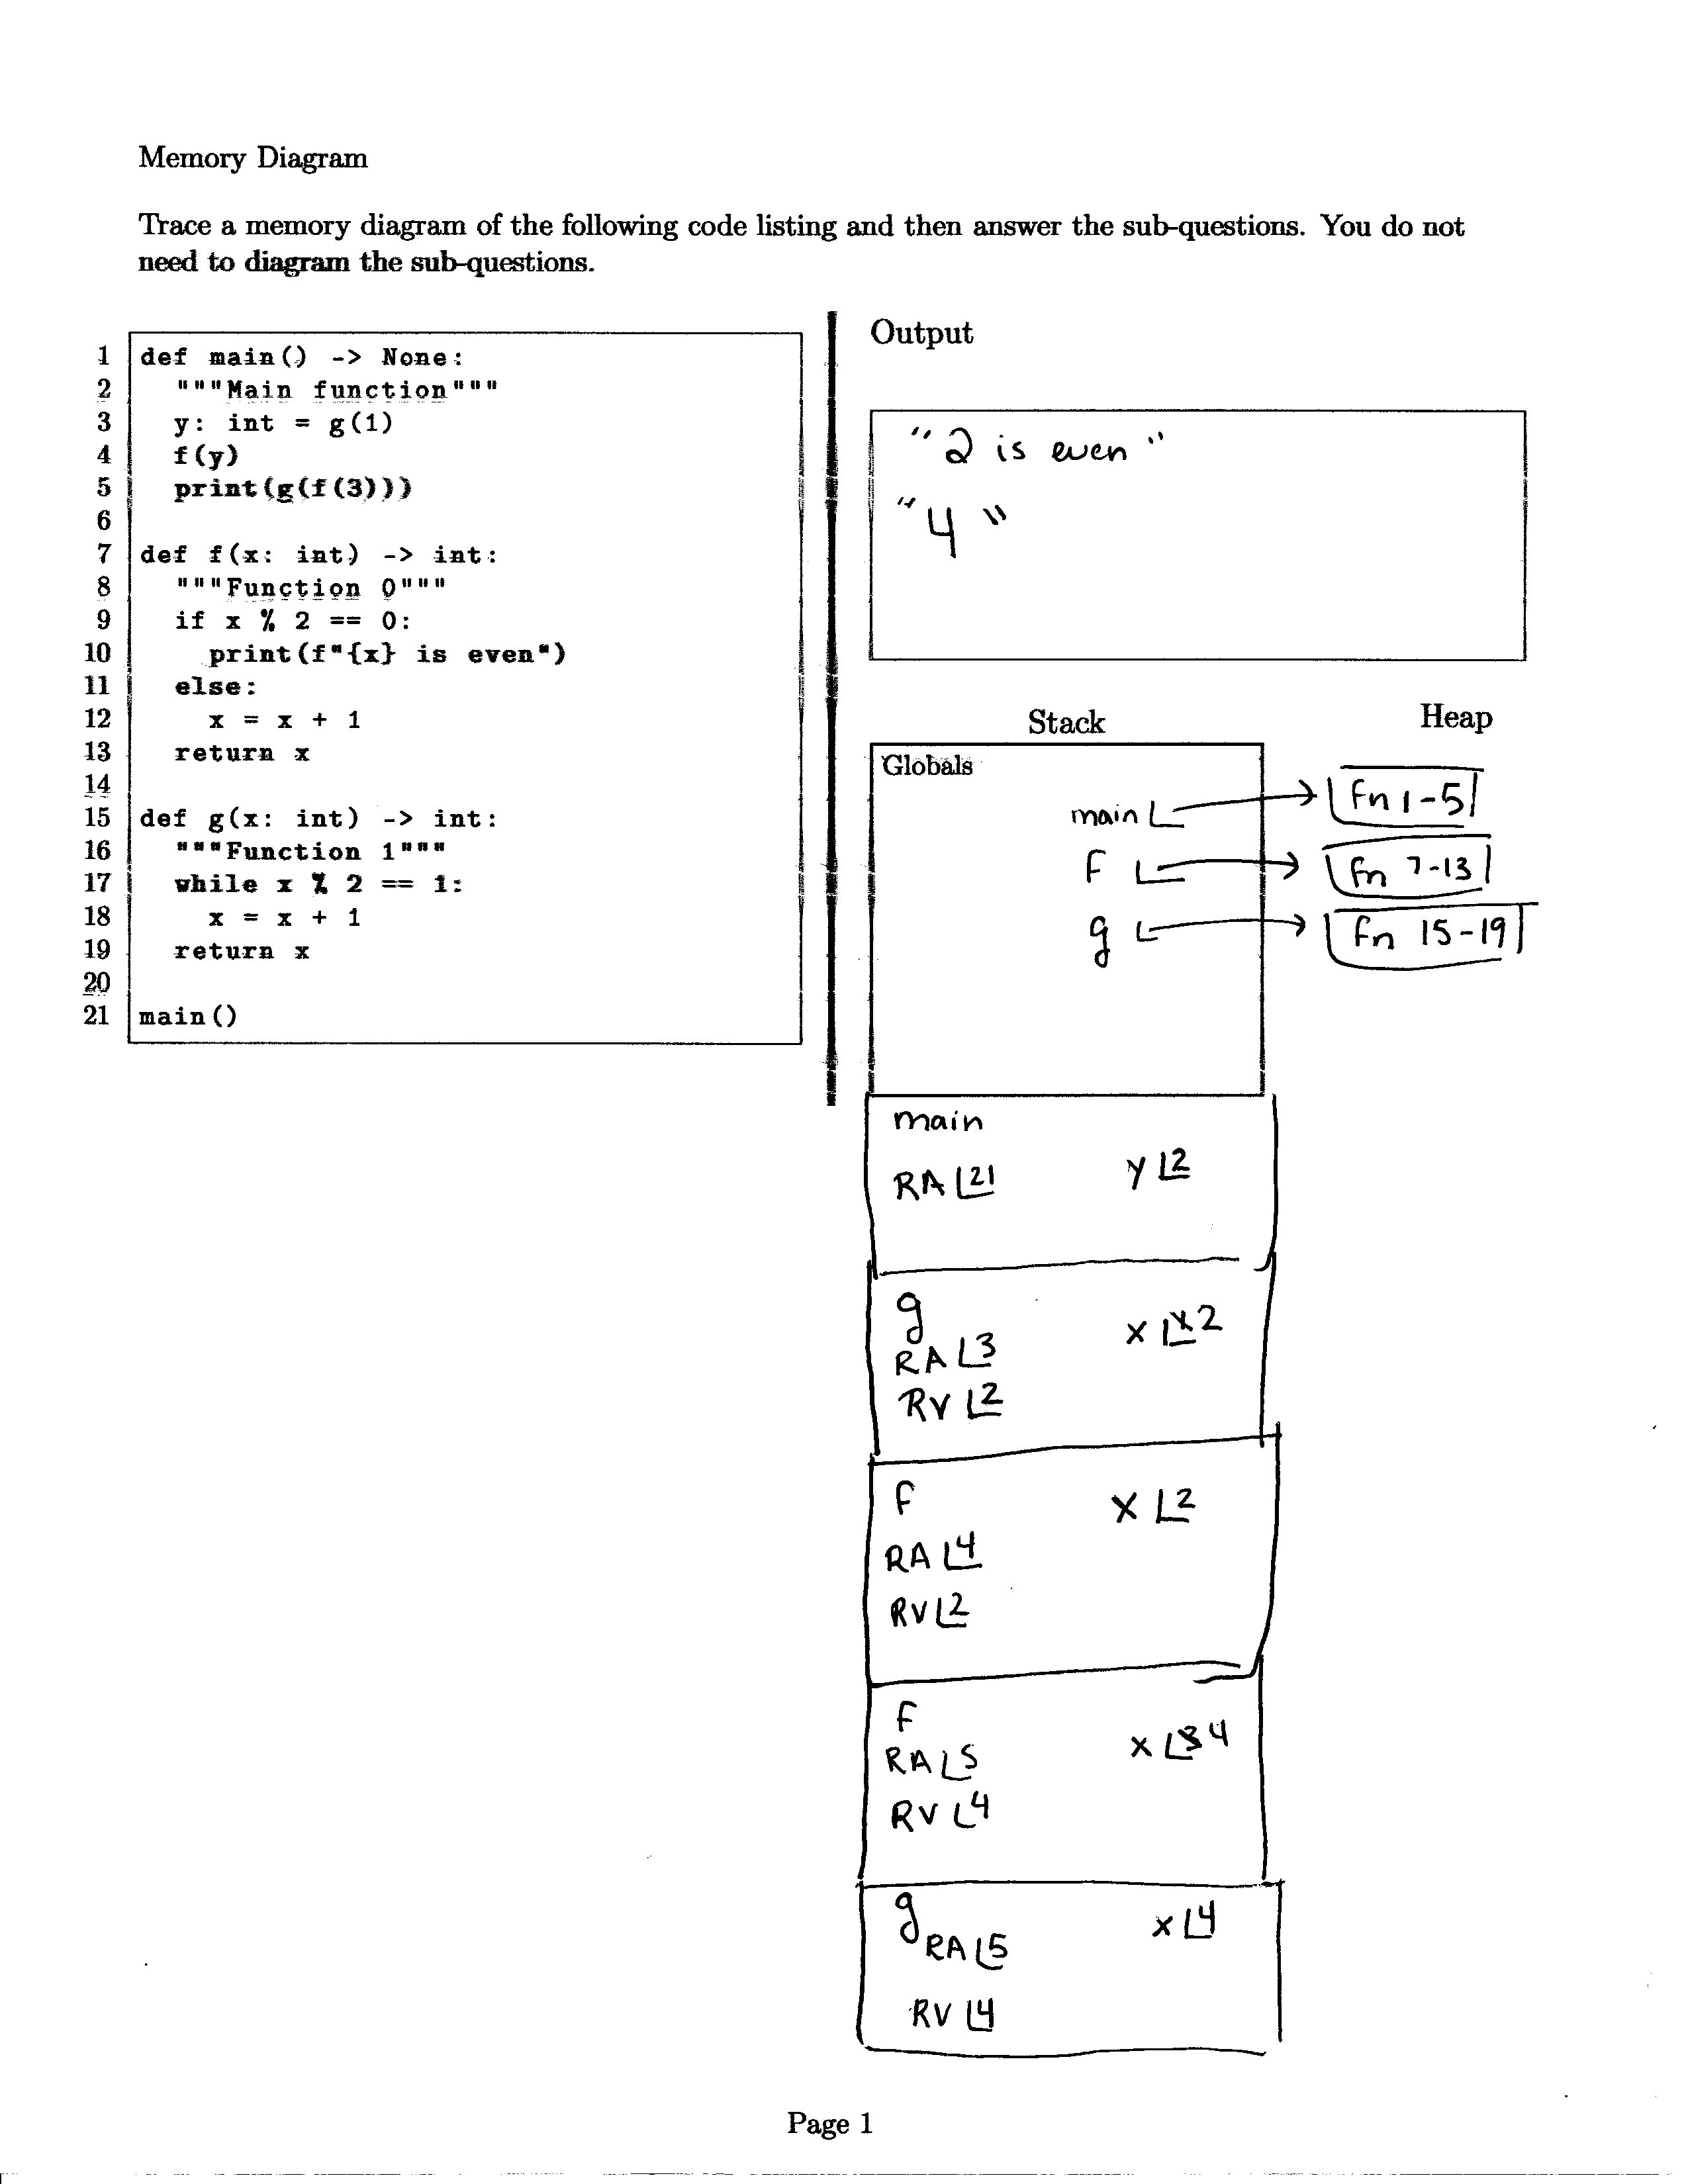 Memory Diagram
Trace a memory diagram of the following code listing and then answer the sub-questions. You do not
need to diagram the sub-questions.
1 def main() -> None:
2   """Main function"""
3   y: int = g(1)
4   f(y)
5   print(g(f(3)))
6
7 def f(x: int) -> int:
8   """Function 0"""
9   if x % 2 == 0:
10     print(f"{x} is even")
11   else:
12     x = x + 1
13   return x
14
15 def g(x: int) -> int:
16   """Function 1"""
17   while x % 2 == 1:
18     x = x + 1
19   return x
20
21 main()
Output
"2 is even"
"4"
Stack Heap
Globals
main fn 1-5
f fn 7-13
g fn 15-19
main
RA 21 y 2
g x 1 2
RA 3
RV 2
f x 2
RA 4
RV 2
f x 3 4
RA 5
RV 4
g x 4
RA 5
RV 4
Page 1